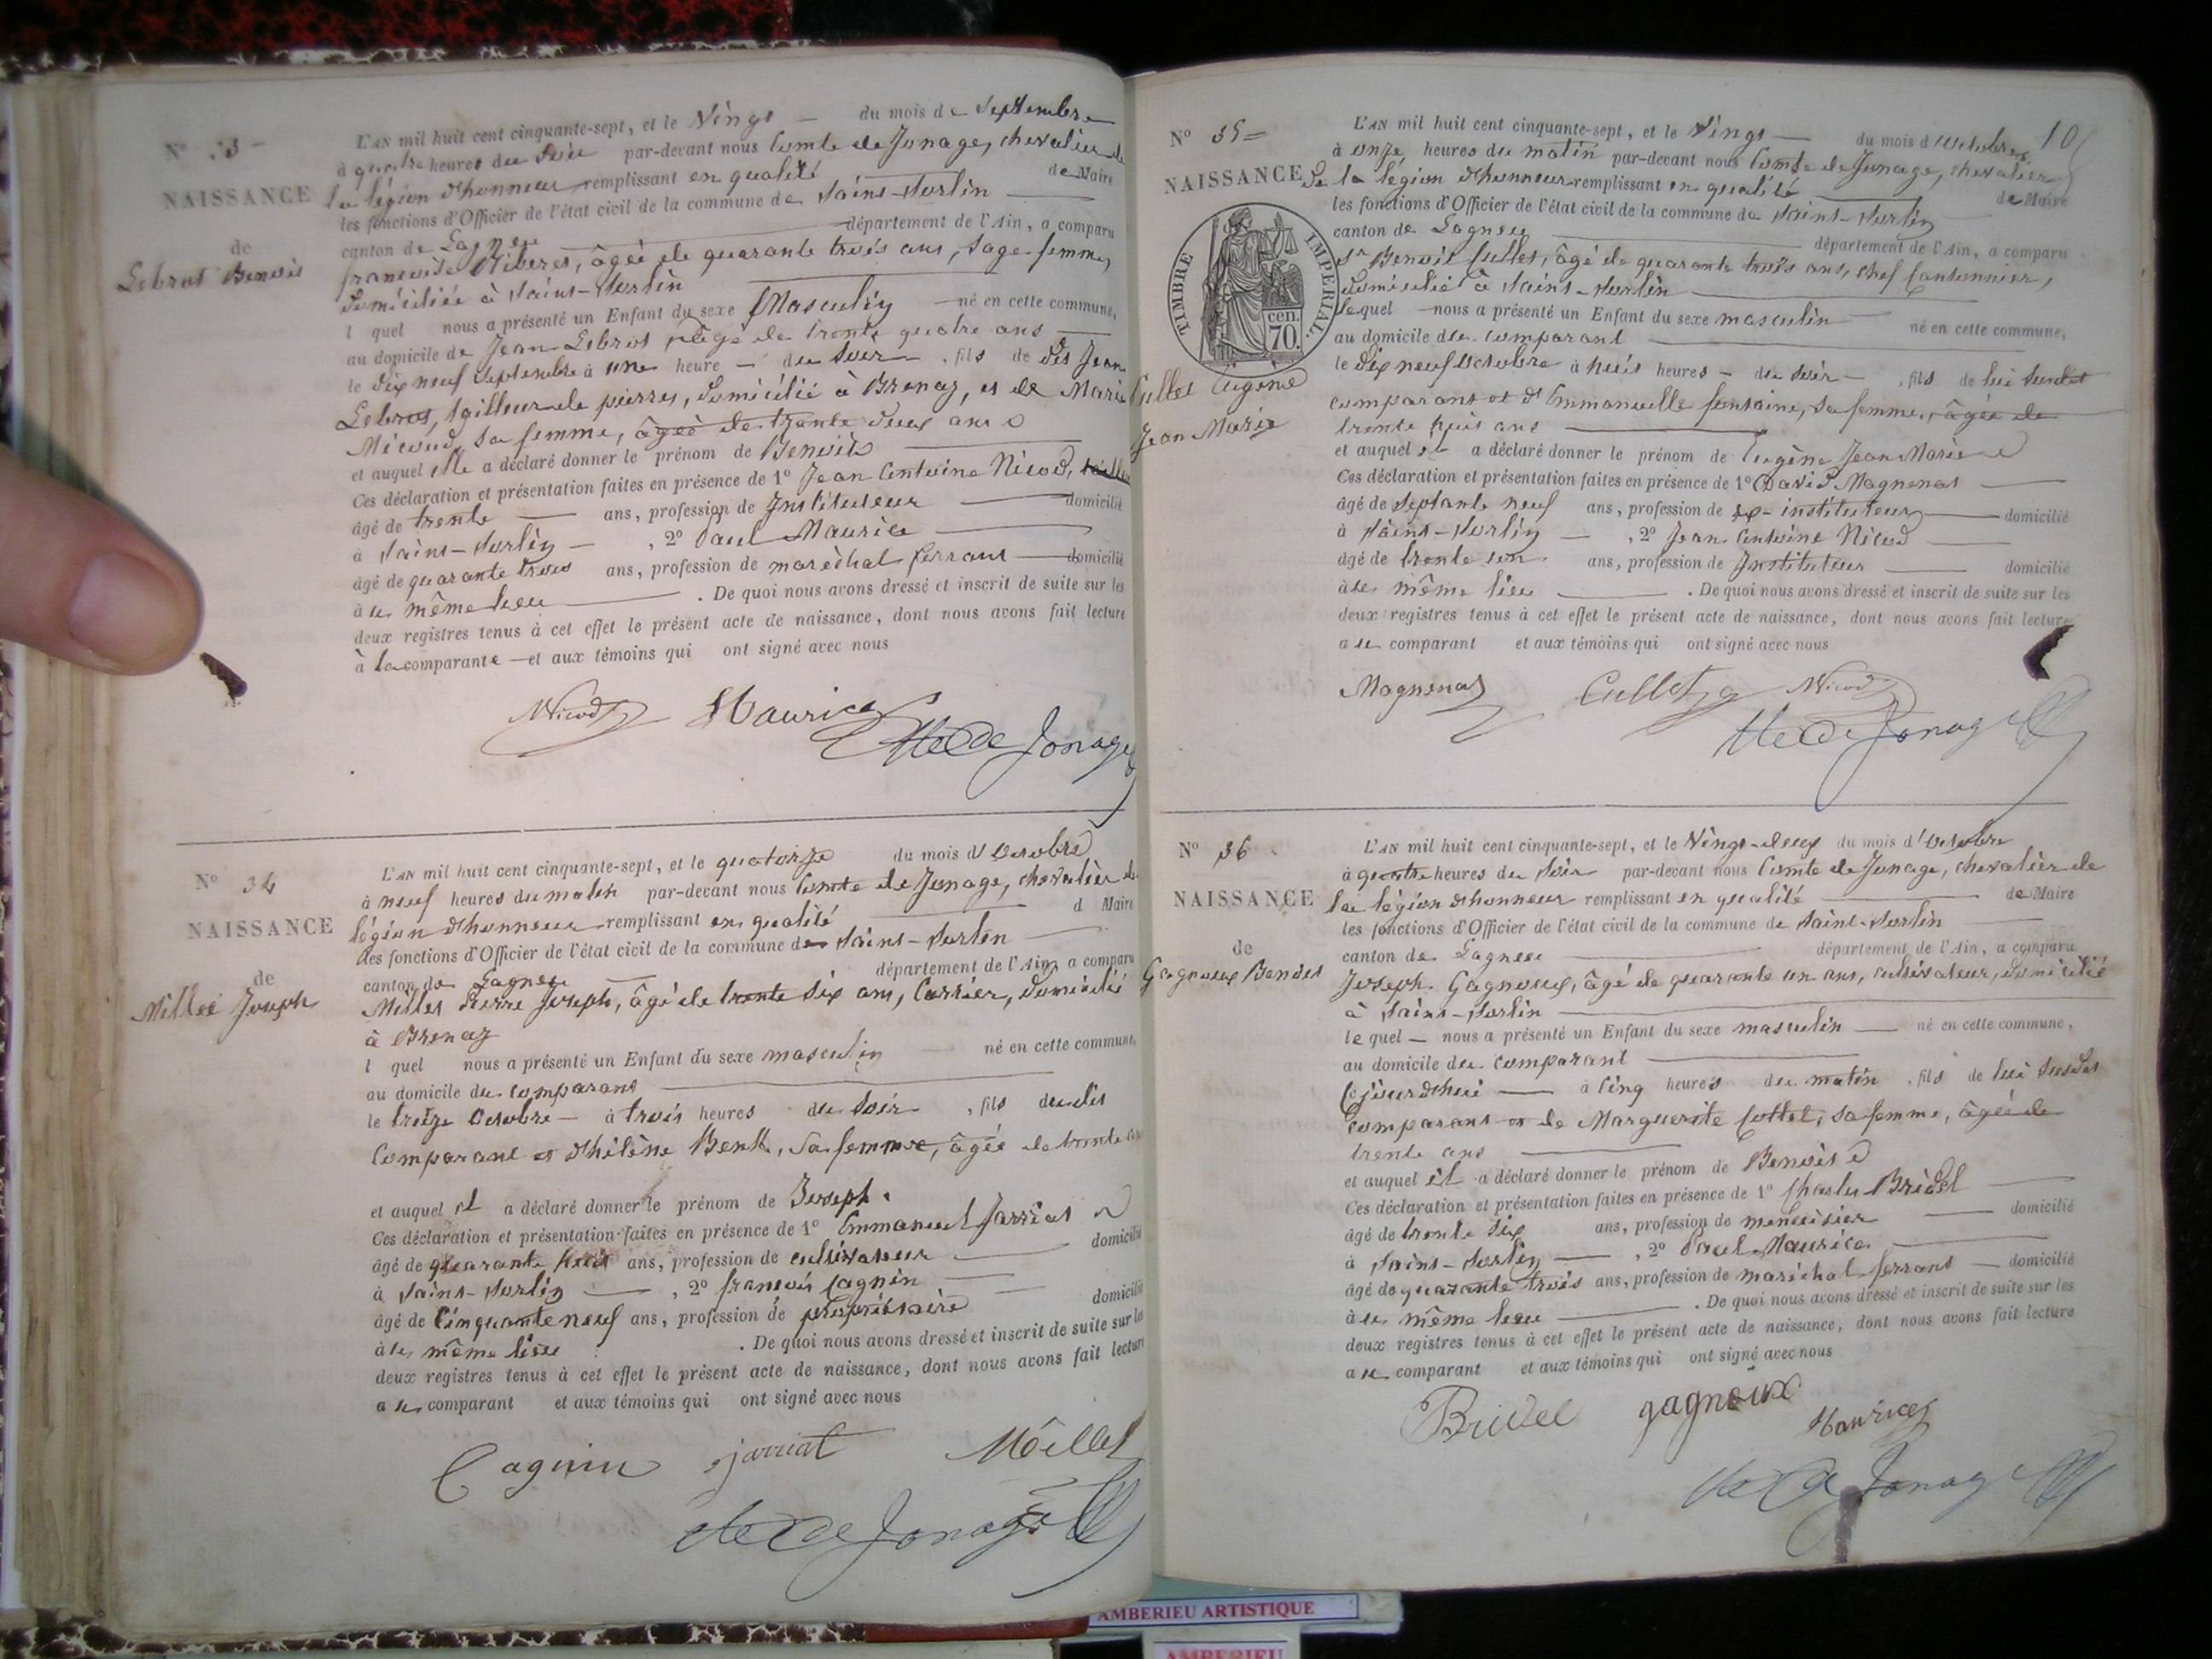 N° 33
NAISSANCE
de
Lebrot Benoit
L'AN mil huit cent cinquante-sept, et le Vingt du mois de Septembre
à quatre heures du Soir par-devant nous Comte de Jonage, chevalier de
la légion d'honneur remplissant en qualité de Maire
les fonctions d'Officier de l'état civil de la commune de Saint-Sorlin
canton de Lagneu département de l'Ain, a comparu
francoise, âgée de quarante trois ans, Sage femme,
Domiciliée à Saint-Sorlin
l quel nous a présenté un Enfant du sexe Masculin né en cette commune,
au domicile de Jean Lebrot âgé de trente quatre ans
le Dix neuf Septembre à une heure du Soir, fils de dit Jean
Lebrot, tailleur de pierres, Domicilié à Brenaz, et de Marie
Micoud, Sa femme, âgée de trente deux ans
et auquel elle a déclaré donner le prénom de Benoit
Ces déclaration et présentation faites en présence de 1° Jean Antoine Nicod,
âgé de trente ans, profession de Instituteur domicilié
à Saint-Sorlin, 2° Paul Maurice
âgé de quarante trois ans, profession de maréchal ferrant domicilié
à u même lieu. De quoi nous avons dressé et inscrit de suite sur les
deux registres tenus à cet effet le présent acte de naissance, dont nous avons fait lecture
à la comparante et aux témoins qui ont signé avec nous
Nicod Maurice Cte de Jonage
N° 34
NAISSANCE
de
Millet Joseph
L'AN mil huit cent cinquante-sept, et le quatorze du mois d'Octobre
à neuf heures du matin par-devant nous Comte de Jonage, chevalier de
légion d'honneur remplissant en qualité d Maire
les fonctions d'Officier de l'état civil de la commune de Saint-Sorlin
canton de Lagneu département de l'Ain, a comparu
Millet Pierre Joseph, âgé de trente Six ans, Carrier, Domicilié
à Brenaz
l quel nous a présenté un Enfant du sexe masculin né en cette commune,
au domicile du comparant
le treize Octobre à trois heures du Soir, fils du dit
Comparant et d'hélène Benk, Sa femme, âgée de trente
et auquel il a déclaré donner le prénom de Joseph.
Ces déclaration et présentation faites en présence de 1° Emmanuel Jarriat
âgé de quarante huit ans, profession de cultivateur domicilié
à Saint-Sorlin, 2° francois Cagnin
âgé de Cinquante neuf ans, profession de propriétaire domicilié
à u même lieu. De quoi nous avons dressé et inscrit de suite sur les
deux registres tenus à cet effet le présent acte de naissance, dont nous avons fait lecture
a u comparant et aux témoins qui ont signé avec nous
Cagnin jarriat Millet
Cte de Jonage
10
N° 35
NAISSANCE
TIMBRE IMPERIAL
70 cen.
Cullet Eugène
Jean Marie
L'AN mil huit cent cinquante-sept, et le Vingt du mois d'Octobre
à onze heures du matin par-devant nous Comte de Jonage, chevalier
de la légion d'honneur remplissant en qualité de Maire
les fonctions d'Officier de l'état civil de la commune de Saint-Sorlin
canton de Lagneu département de l'Ain, a comparu
Sr Benoit Cullet, âgé de quarante trois ans, chef Cantonnier,
Domicilié à Saint-Sorlin
lequel nous a présenté un Enfant du sexe masculin né en cette commune,
au domicile du comparant
le Dix neuf Octobre à huit heures du Soir, fils de lui Susdit
comparant et d'Emmanuelle fontaine, Sa femme, âgée de
trente huit ans
et auquel il a déclaré donner le prénom de Eugène Jean Marie
Ces déclaration et présentation faites en présence de 1° David Magnenat
âgé de Septante neuf ans, profession de ex-instituteur domicilié
à Saint-Sorlin, 2° Jean Antoine Nicod
âgé de trente un ans, profession de Instituteur domicilié
à u même lieu. De quoi nous avons dressé et inscrit de suite sur les
deux registres tenus à cet effet le présent acte de naissance, dont nous avons fait lecture
a u comparant et aux témoins qui ont signé avec nous
Magnenat Cullet Nicod
Cte de Jonage
N° 36
NAISSANCE
de
Gagnoux Benoit
L'AN mil huit cent cinquante-sept, et le Vingt-deux du mois d'Octobre
à quatre heures du Soir par-devant nous Comte de Jonage, chevalier de
la légion d'honneur remplissant en qualité de Maire
les fonctions d'Officier de l'état civil de la commune de Saint-Sorlin
canton de Lagneu département de l'Ain, a comparu
Joseph Gagnoux, âgé de quarante un ans, cultivateur, Domicilié
à Saint-Sorlin
lequel nous a présenté un Enfant du sexe masculin né en cette commune,
au domicile du comparant
Cejourd'hui à Cinq heures du matin, fils de lui Susdit
Comparant et de Marguerite Cottet, Sa femme, âgée de
trente ans
et auquel il a déclaré donner le prénom de Benoit
Ces déclaration et présentation faites en présence de 1° Charles Bridel
âgé de trente Six ans, profession de menuisier domicilié
à Saint-Sorlin, 2° Paul Maurice
âgé de quarante trois ans, profession de maréchal ferrant domicilié
à u même lieu. De quoi nous avons dressé et inscrit de suite sur les
deux registres tenus à cet effet le présent acte de naissance, dont nous avons fait lecture
a u comparant et aux témoins qui ont signé avec nous
Bridel gagnoux Maurice
Cte de Jonage
AMBERIEU ARTISTIQUE
AMBERIEU